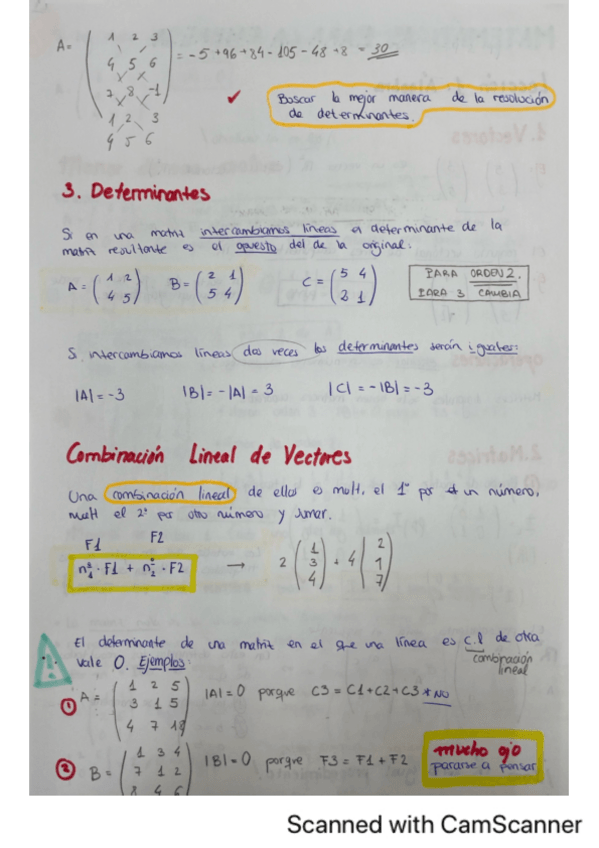 A= ( 1 2 3 = -5 +96 +84 -105 -48 +8 = 30
4 5 6
7 8 -1 )
1 2 3
4 5 6
✓ Buscar la mejor manera de la resolución
de determinantes.
3. Determinantes
Si en una matriz intercambiamos líneas el determinante de la
matriz resultante es el opuesto del de la original:
A = ( 1 2 B = ( 2 1 C = ( 5 4 PARA ORDEN 2.
4 5 ) 5 4 ) 2 1 ) PARA 3 CAMBIA
Si intercambiamos líneas dos veces los determinantes serán iguales:
|A| = -3 |B| = -|A| = 3 |C| = -|B| = -3
Combinación Lineal de Vectores
Una combinación lineal de ellos es mult, el 1º por un número,
mult el 2º por otro número y sumar.
F1 F2
nº1 · F1 + nº2 · F2 → 2 ( 1 3 4 ) + 4 ( 2 1 7 )
El determinante de una matriz en el que una línea es c.l de otra
vale 0. Ejemplos: combinación
lineal
① A = ( 1 2 5 |A| = 0 porque C3 = C1 + C2 + C3 * NO
3 1 5
4 7 18 )
② B = ( 1 3 4 |B| = 0 porque F3 = F1 + F2 mucho ojo
7 1 2 pararse a pensar
8 4 6
Scanned with CamScanner